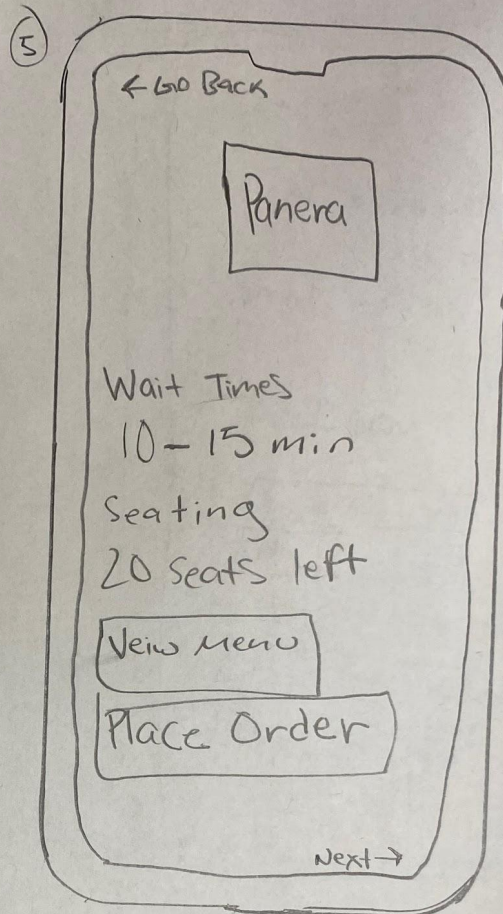 5
← Go Back
Panera
Wait Times
10-15 min
Seating
20 Seats left
Veiw Menu
Place Order
Next →